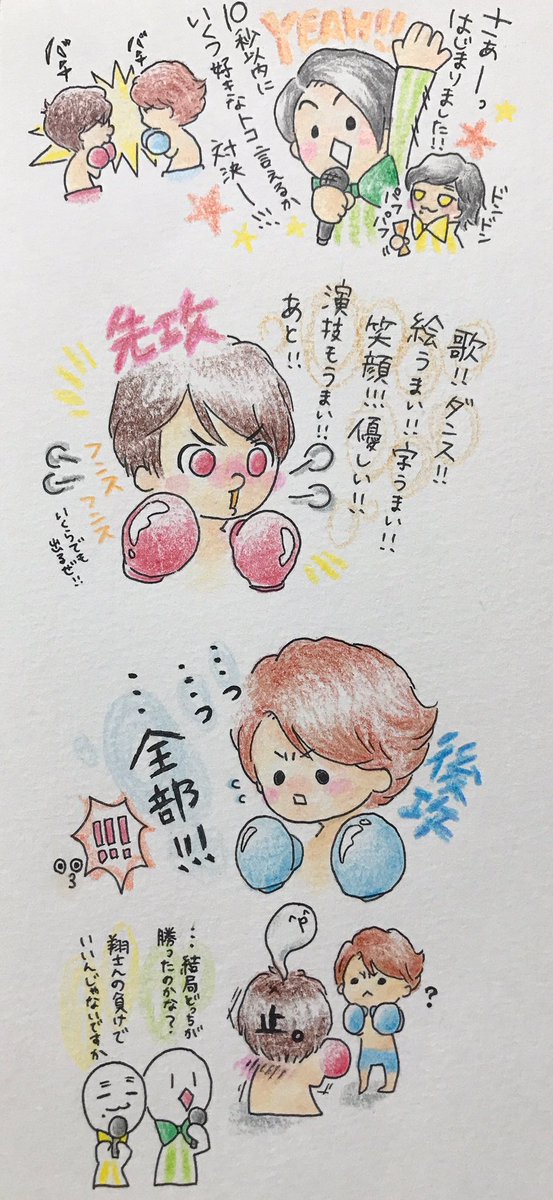 さぁーっ
はじまりました!!
YEAH!!
10秒以内に
いくつ好きなトコ言えるか
対決ー!!!
バチ
バチ
ドンドン
パフ
パフ
先攻
歌!! ダンス!!
絵うまい!! 字うまい!!
笑顔!!! 優しい!!
演技もうまい!!
あと!!
いくらでも
出るぜ!!
後攻
…っ
…っ
…全部!!!
!!!
止。
?
…結局どっちが
勝ったのかな?
翔さんの負けで
いいんじゃないですか